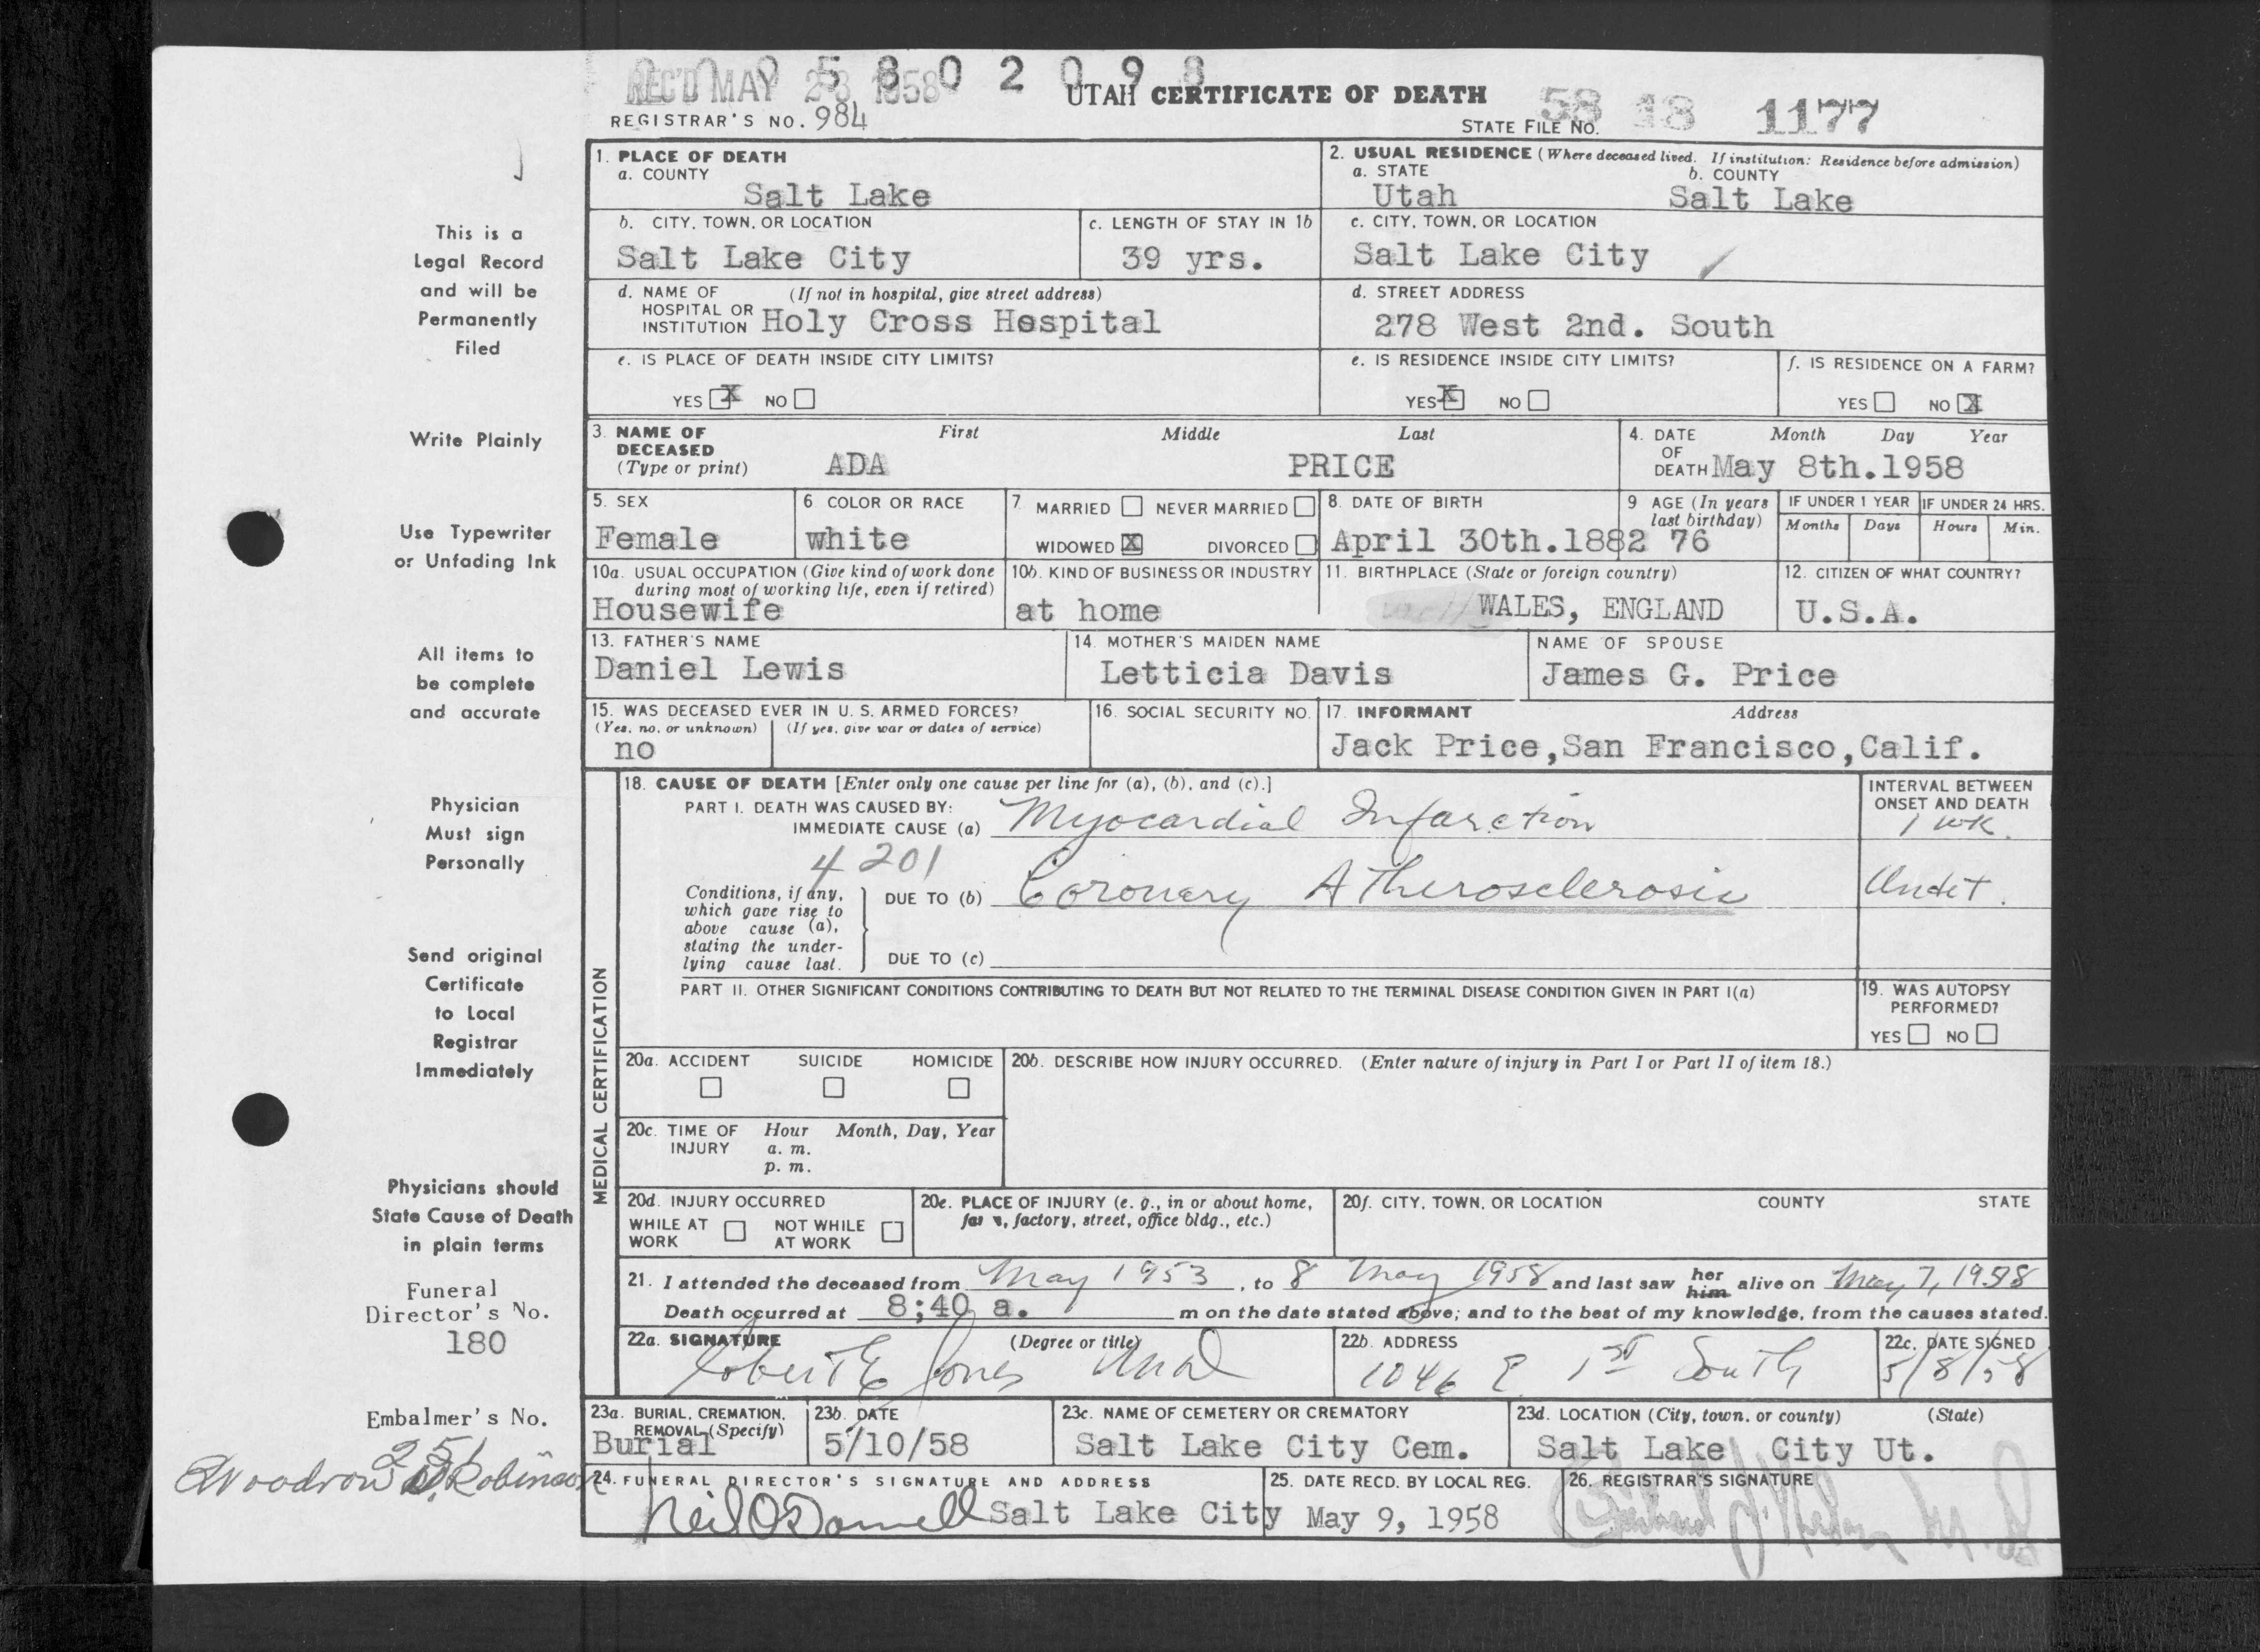 REC'D MAY 28 1958
5 8 0 2 0 9 8
UTAH CERTIFICATE OF DEATH
REGISTRAR'S NO. 984
STATE FILE NO. 58 18 1177
This is a
Legal Record
and will be
Permanently
Filed
Write Plainly
Use Typewriter
or Unfading Ink
All items to
be complete
and accurate
Physician
Must sign
Personally
Send original
Certificate
to Local
Registrar
Immediately
Physicians should
State Cause of Death
in plain terms
Funeral
Director's No.
180
Embalmer's No.
251
Woodrow D. Robinson
1. PLACE OF DEATH
a. COUNTY
Salt Lake
2. USUAL RESIDENCE (Where deceased lived. If institution: Residence before admission)
a. STATE b. COUNTY
Utah Salt Lake
b. CITY, TOWN, OR LOCATION
Salt Lake City
c. LENGTH OF STAY IN 1b
39 yrs.
c. CITY, TOWN, OR LOCATION
Salt Lake City
d. NAME OF (If not in hospital, give street address)
HOSPITAL OR
INSTITUTION Holy Cross Hospital
d. STREET ADDRESS
278 West 2nd. South
e. IS PLACE OF DEATH INSIDE CITY LIMITS?
YES X NO
e. IS RESIDENCE INSIDE CITY LIMITS?
YES X NO
f. IS RESIDENCE ON A FARM?
YES NO X
3. NAME OF DECEASED (Type or print)
First Middle Last
ADA PRICE
4. DATE OF DEATH
Month Day Year
May 8th.1958
5. SEX
Female
6 COLOR OR RACE
white
7 MARRIED NEVER MARRIED
WIDOWED X DIVORCED
8. DATE OF BIRTH
April 30th.1882
9 AGE (In years last birthday)
76
IF UNDER 1 YEAR
Months Days
IF UNDER 24 HRS.
Hours Min.
10a. USUAL OCCUPATION (Give kind of work done
during most of working life, even if retired)
Housewife
10b. KIND OF BUSINESS OR INDUSTRY
at home
11. BIRTHPLACE (State or foreign country)
WALES, ENGLAND
12. CITIZEN OF WHAT COUNTRY?
U.S.A.
13. FATHER'S NAME
Daniel Lewis
14. MOTHER'S MAIDEN NAME
Letticia Davis
NAME OF SPOUSE
James G. Price
15. WAS DECEASED EVER IN U. S. ARMED FORCES?
(Yes, no, or unknown) (If yes, give war or dates of service)
no
16. SOCIAL SECURITY NO.
17. INFORMANT Address
Jack Price,San Francisco,Calif.
MEDICAL CERTIFICATION
18. CAUSE OF DEATH [Enter only one cause per line for (a), (b), and (c).]
PART I. DEATH WAS CAUSED BY:
IMMEDIATE CAUSE (a) Myocardial Infarction
INTERVAL BETWEEN
ONSET AND DEATH
1 wk.
4201
Conditions, if any,
which gave rise to
above cause (a),
stating the under-
lying cause last.
DUE TO (b) Coronary Atherosclerosis
Undet.
DUE TO (c)
PART II. OTHER SIGNIFICANT CONDITIONS CONTRIBUTING TO DEATH BUT NOT RELATED TO THE TERMINAL DISEASE CONDITION GIVEN IN PART I(a)
19. WAS AUTOPSY
PERFORMED?
YES NO
20a. ACCIDENT SUICIDE HOMICIDE
20b. DESCRIBE HOW INJURY OCCURRED. (Enter nature of injury in Part I or Part II of item 18.)
20c. TIME OF INJURY
Hour Month, Day, Year
a. m.
p. m.
20d. INJURY OCCURRED
WHILE AT WORK NOT WHILE AT WORK
20e. PLACE OF INJURY (e. g., in or about home,
farm, factory, street, office bldg., etc.)
20f. CITY, TOWN, OR LOCATION COUNTY STATE
21. I attended the deceased from May 1953, to 8 May 1958 and last saw her him alive on May 7, 1958
Death occurred at 8;40 a. m on the date stated above; and to the best of my knowledge, from the causes stated.
22a. SIGNATURE (Degree or title)
Robert E Jones MD
22b. ADDRESS
1046 E 1st South
22c. DATE SIGNED
5/8/58
23a. BURIAL, CREMATION,
REMOVAL (Specify)
Burial
23b. DATE
5/10/58
23c. NAME OF CEMETERY OR CREMATORY
Salt Lake City Cem.
23d. LOCATION (City, town, or county) (State)
Salt Lake City Ut.
24. FUNERAL DIRECTOR'S SIGNATURE AND ADDRESS
Neil O'Donnell Salt Lake City
25. DATE RECD. BY LOCAL REG.
May 9, 1958
26. REGISTRAR'S SIGNATURE